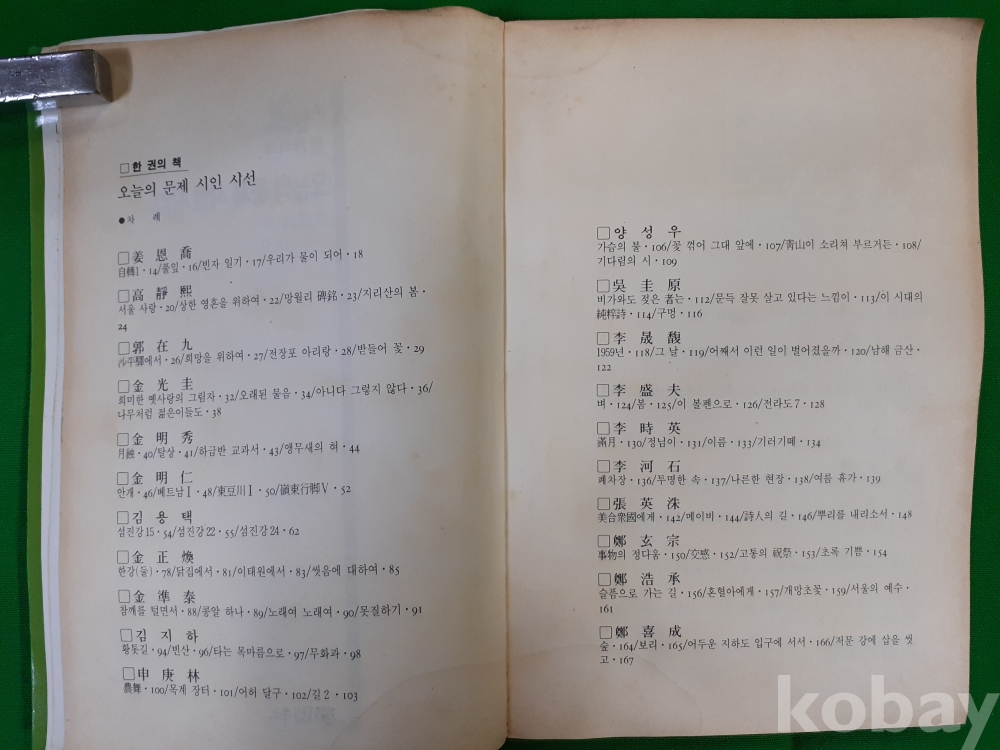 □한 권의 책
오늘의 문제 시인 시선
●차 례
□姜恩喬
自轉1·14/풀잎·16/빈자 일기·17/우리가 물이 되어·18
□高靜熙
서울 사랑·20/상한 영혼을 위하여·22/망월리 碑銘·23/지리산의 봄·
24
□郭在九
沙平驛에서·26/희망을 위하여·27/전장포 아리랑·28/받들어 꽃·29
□金光圭
희미한 옛사랑의 그림자·32/오래된 물음·34/아니다 그렇지 않다·36/
나무처럼 젊은이들도·38
□金明秀
月蝕·40/탈상·41/하급반 교과서·43/앵무새의 혀·44
□金明仁
안개·46/베트남Ⅰ·48/東豆川Ⅰ·50/嶺東行脚Ⅴ·52
□김용택
섬진강15·54/섬진강22·55/섬진강24·62
□金正煥
한강(둘)·78/닭집에서·81/이태원에서·83/씻음에 대하여·85
□金準泰
참깨를 털면서·88/콩알 하나·89/노래여 노래여·90/못질하기·91
□김지하
황톳길·94/빈산·96/타는 목마름으로·97/무화과·98
□申庚林
農舞·100/목계 장터·101/어허 달구·102/길2·103
□양성우
가슴의 불·106/꽃 꺾어 그대 앞에·107/靑山이 소리쳐 부르거든·108/
기다림의 시·109
□吳圭原
비가와도 젖은 者는·112/문득 잘못 살고 있다는 느낌이·113/이 시대의
純粹詩·114/구멍·116
□李晟馥
1959년·118/그 날·119/어째서 이런 일이 벌어졌을까·120/남해 금산·
122
□李盛夫
벼·124/봄·125/이 볼펜으로·126/전라도7·128
□李時英
滿月·130/정님이·131/이름·133/기러기떼·134
□李河石
폐차장·136/투명한 속·137/나른한 현장·138/여름 휴가·139
□張英洙
美合衆國에게·142/메이비·144/詩人의 길·146/뿌리를 내리소서·148
□鄭玄宗
事物의 정다움·150/交感·152/고통의 祝祭·153/초록 기쁨·154
□鄭浩承
슬픔으로 가는 길·156/혼혈아에게·157/개망초꽃·159/서울의 예수·
161
□鄭喜成
숲·164/보리·165/어두운 지하도 입구에 서서·166/저문 강에 삽을 씻
고·167
kobay